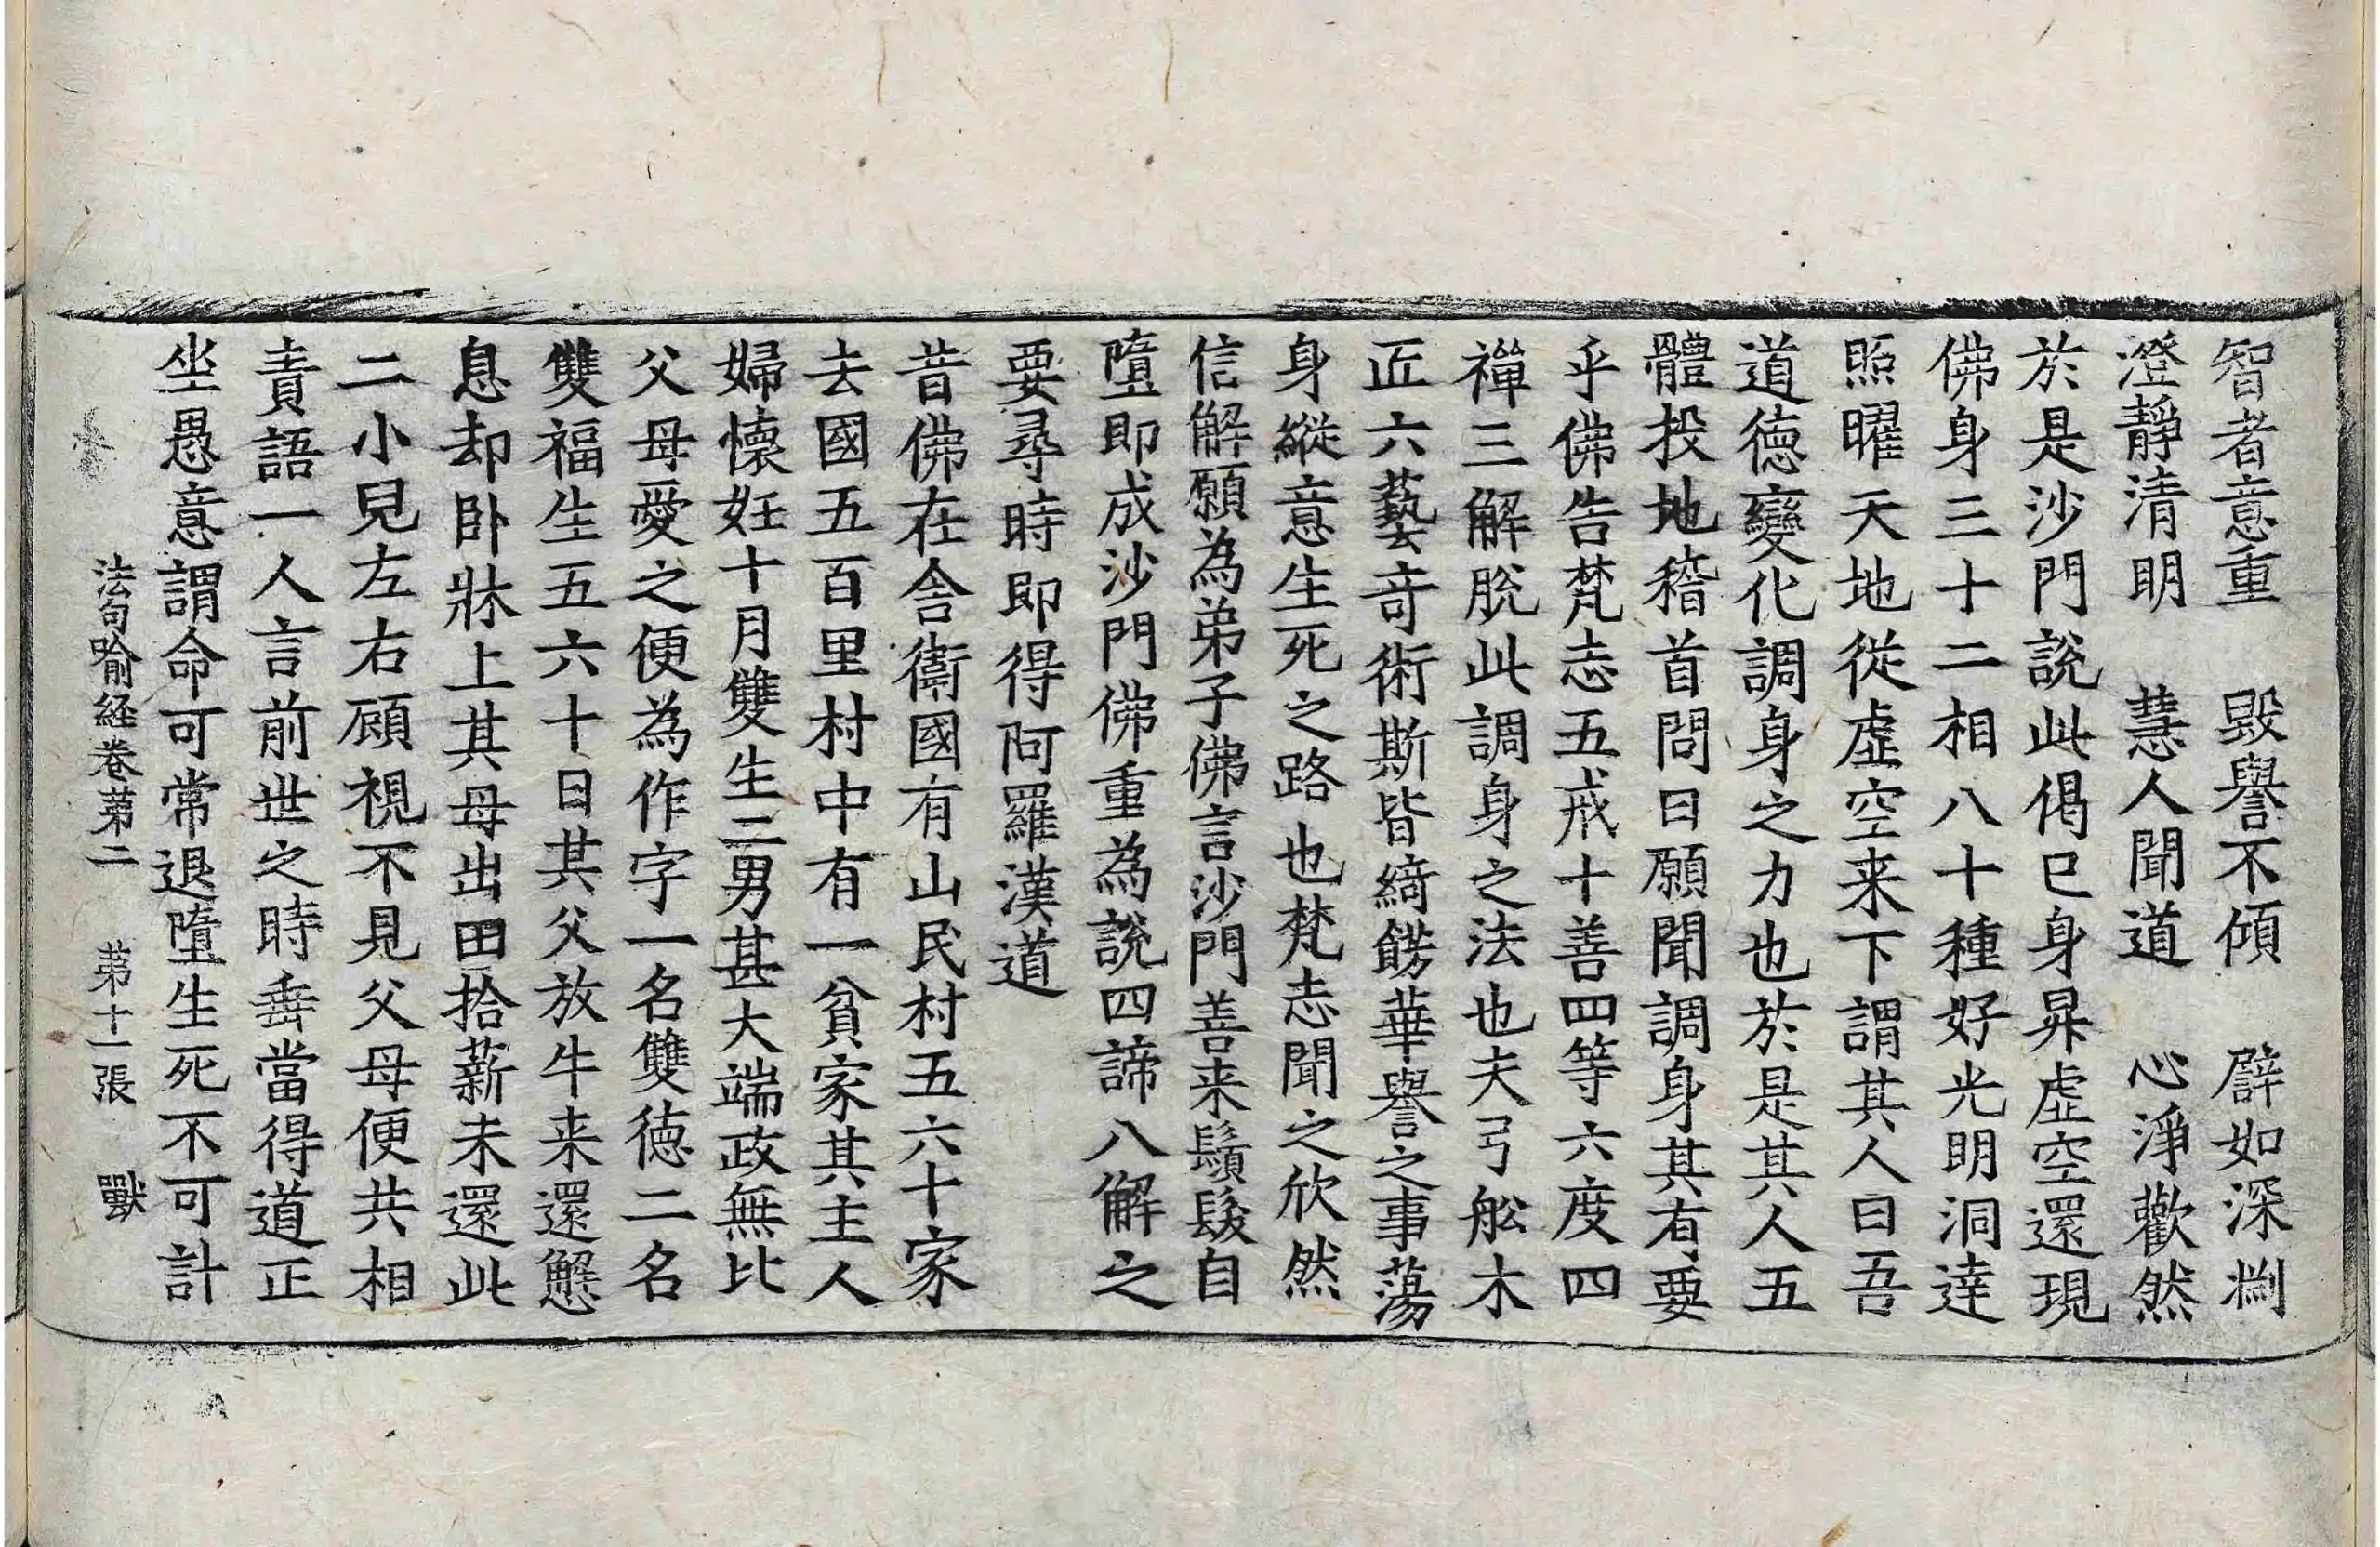 智者意重　毀譽不傾　辟如深淵
澄靜清明　慧人聞道　心淨歡然
於是沙門說此偈已身昇虛空還現
佛身三十二相八十種好光明洞達
照曜天地從虛空来下謂其人曰吾
道德變化調身之力也於是其人五
體投地稽首問曰願聞調身其有要
乎佛告梵志五戒十善四等六度四
禪三解脫此調身之法也夫弓舩木
匠六藝竒術斯皆綺餝華譽之事蕩
身縱意生死之路也梵志聞之欣然
信解願為弟子佛言沙門善来鬚髮自
墮即成沙門佛重為說四諦八解之
要尋時即得阿羅漢道
昔佛在舍衛國有山民村五六十家
去國五百里村中有一貧家其主人
婦懷妊十月雙生二男甚大端政無比
父母愛之便為作字一名雙德二名
雙福生五六十日其父放牛来還懈
息却卧牀上其母出田拾薪未還此
二小兒左右顧視不見父母便共相
責語一人言前世之時垂當得道正
坐愚意謂命可常退墮生死不可計
法句喻経卷苐二　苐十一張　獸